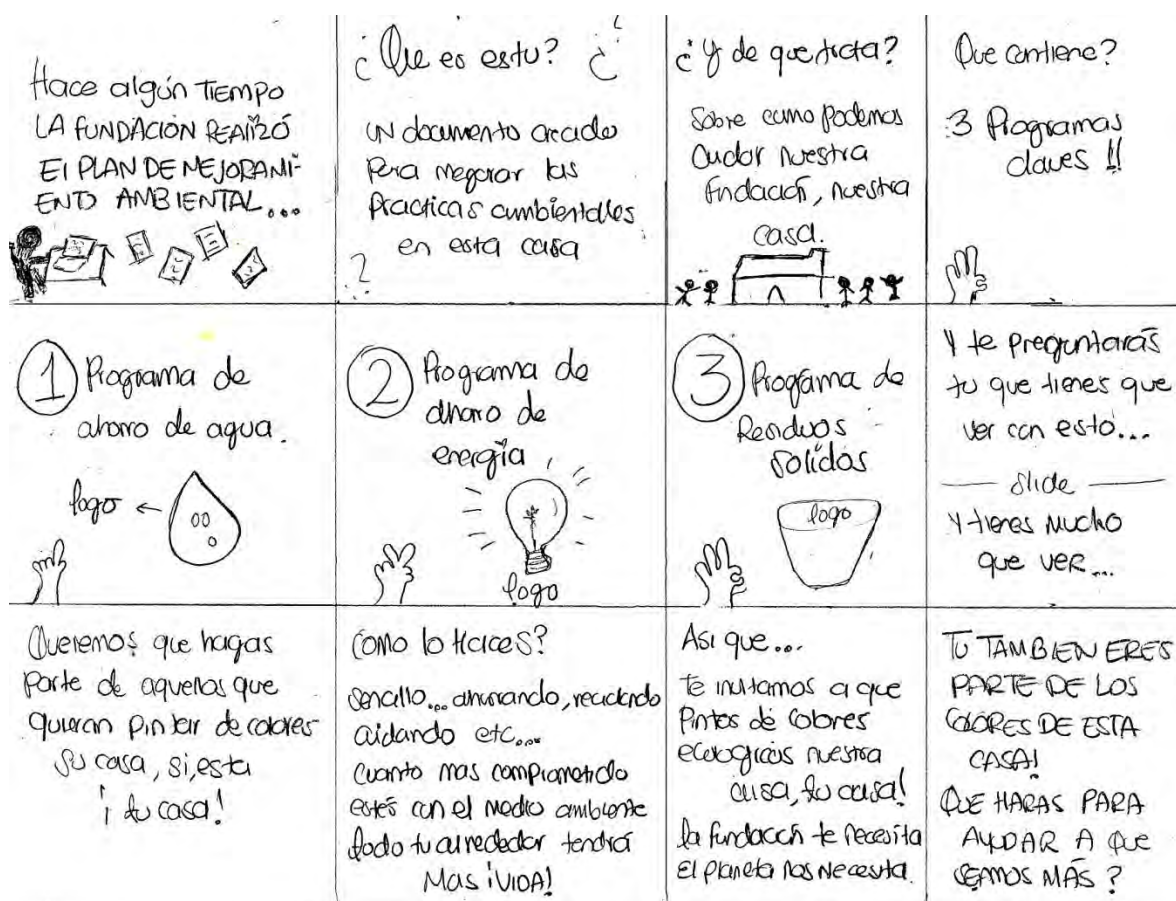 Hace algún TIEMPO
LA FUNDACIÓN REALIZÓ
El PLAN DE MEJORAMI-
ENTO AMBIENTAL...
¿Que es esto? ¿
?
un documento creado
para mejorar las
practicas ambientales
en esta casa
?
¿Y de que trata?
Sobre como podemos
Cuidar nuestra
fundación, nuestra
casa.
Que contiene?
3 Programas
claves !!
1 Programa de
ahorro de agua.
logo
2 Programa de
ahorro de
energía
logo
3 Programa de
Residuos
Solidos
logo
Y te preguntarás
tu que tienes que
ver con esto...
slide
Y tienes mucho
que VER...
Queremos que hagas
Parte de aquellos que
quieran Pintar de colores
su casa, si, esta
¡tu casa!
Como lo Haces?
sencillo... ahorrando, reciclando
cuidando etc...
Cuanto mas comprometido
estés con el medio ambiente
todo tu alrededor tendrá
Mas ¡VIDA!
Asi que...
te invitamos a que
Pintes de colores
ecologicos nuestra
casa, tu casa!
la fundación te necesita
El planeta nos necesita.
TU TAMBIEN ERES
PARTE DE LOS
COLORES DE ESTA
CASA!
QUE HARAS PARA
AYUDAR A QUE
SEAMOS MÁS?